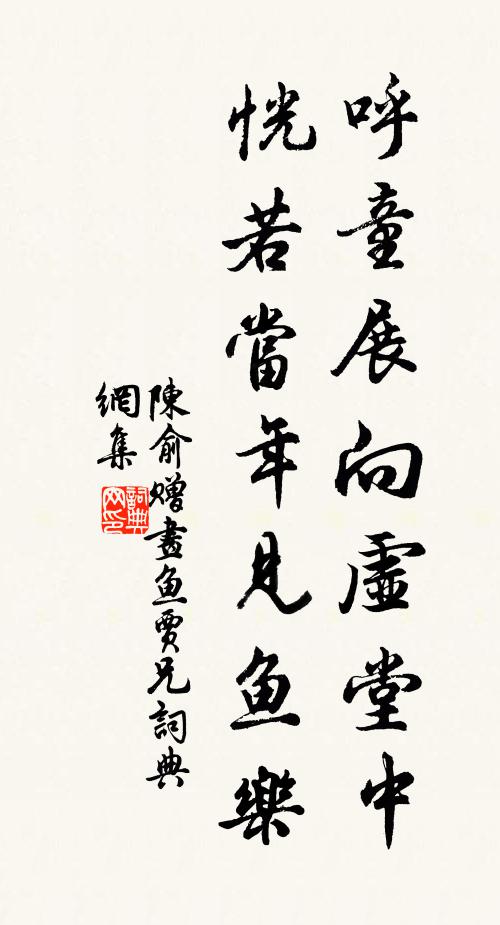 呼童展向虛堂中
恍若當年見魚樂
陳俞贈畫魚賈兄詞典
網集
詞典
网印